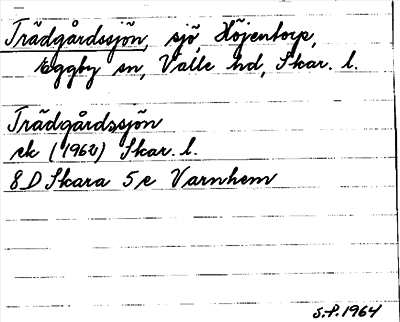 Trädgårdssjön, sjö, Höjentorp,
Eggby sn, Valle hd, Skar. l.
Trädgårdssjön
ek (1960) Skar. l.
8D Skara 5e Varnhem
S.P. 1964